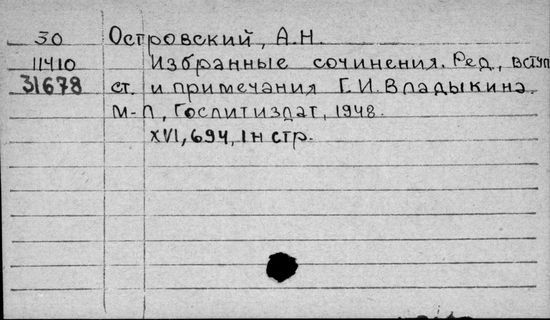 30 Островский, А.Н.
11410 Избранные сочинения. Ред., вступ
31678 ст. и примечания Г.И. Владыкина.
М-Л, Гослитиздат, 1948.
XVI, 694, 1н стр.